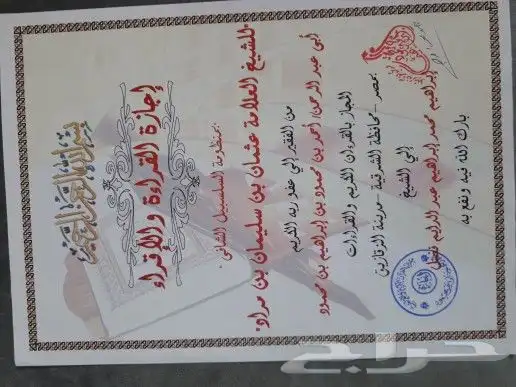 بسم الله الرحمن الرحيم
إجازة القراءة والإقراء
بمنظومة السلسبيل الشافي
للشيخ العلامة عثمان بن سليمان بن مراد
من الفقير إلى عفو ربه الكريم
أبي عبد الرحمن/ أحمد بن محمود بن إبراهيم بن محمود
المجاز بالقرءان الكريم والقراءات
بمصر - محافظة الشرقية - مدينة الزقازيق
إلى الشيخ
إبراهيم محمد إبراهيم عبد الدايم
بارك الله فيه ونفع به
حراج